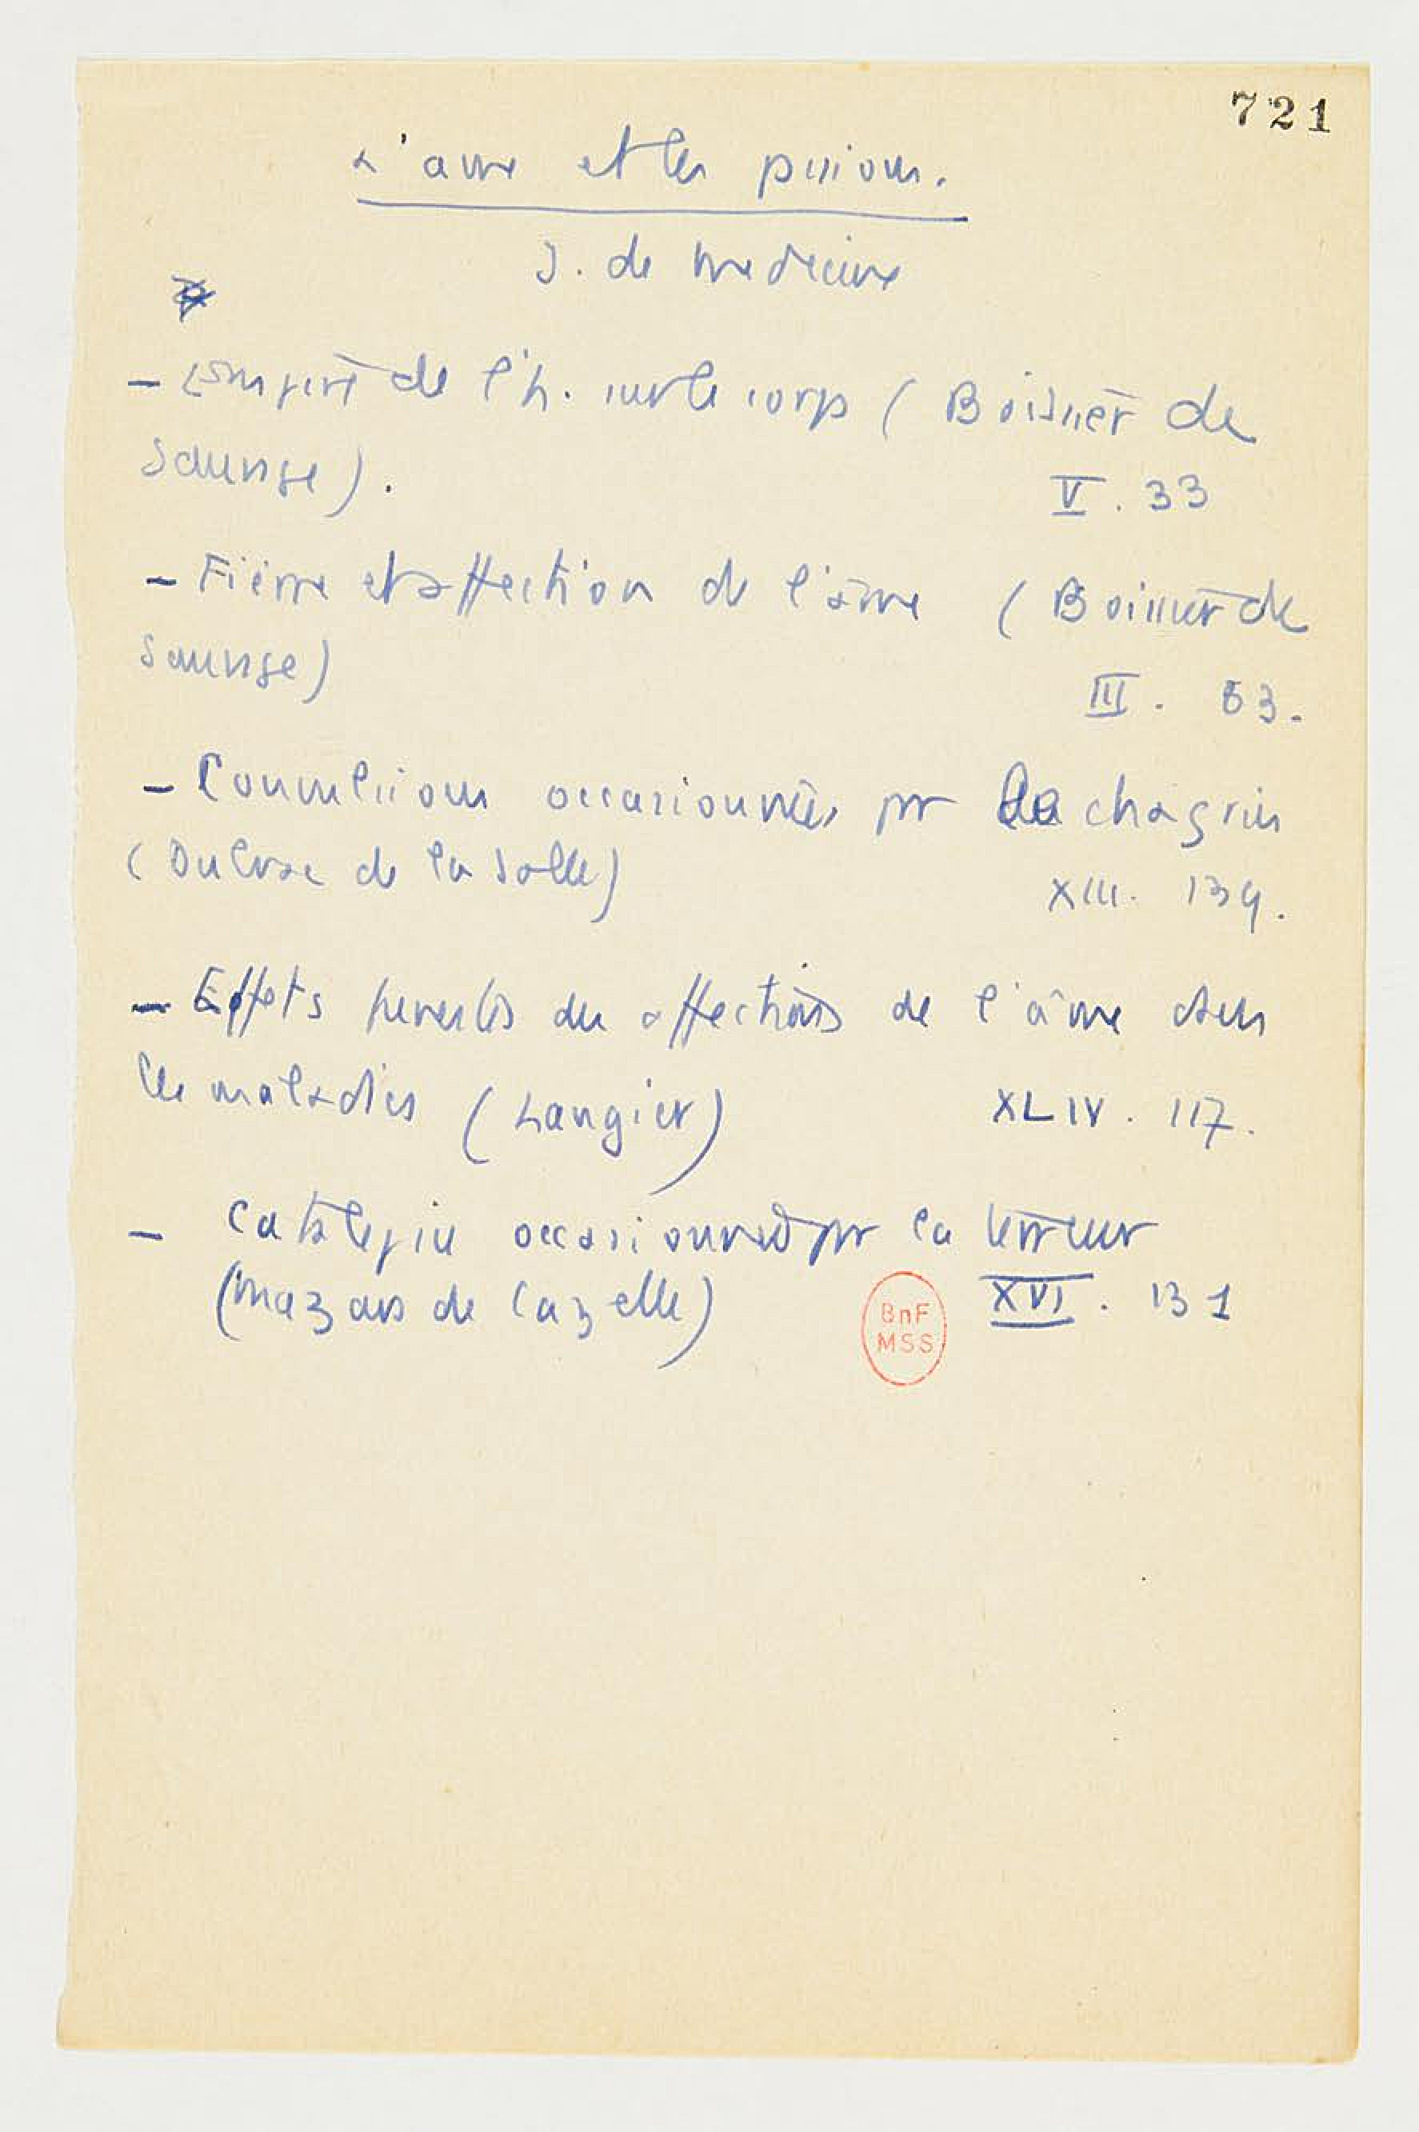 721
L'ame et les passions.
J. de medecine
- Empire de l'h. sur le corps ( Boissier de
Sauvage).
V. 33
- Fièvre et affection de l'âme ( Boissier de
Sauvage)
III. 63.
- Convulsions occasionnées par le chagrin
( de la Salle)
XIII. 139.
- Effets funestes des affections de l'âme dans
les maladies (Laugier) XLIV. 117.
- Catalepsie occasionnée par la terreur
(Mazars de Cazelle) XVI. 131
BnF
MSS